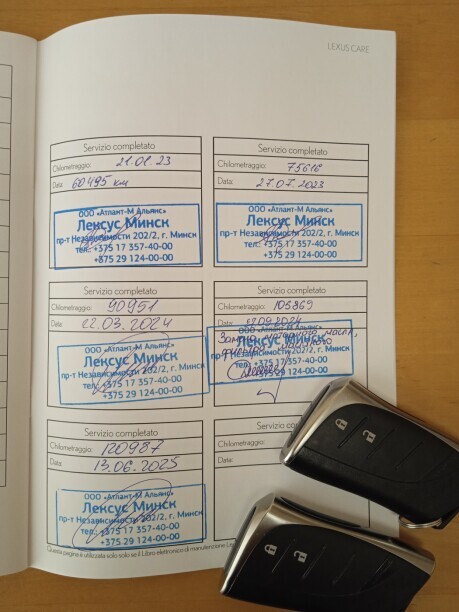 LEXUS CARE
Servizio completato
Chilometraggio: 21.01.23
Data: 60495 км
ООО «Атлант-М Альянс»
Лексус Минск
пр-т Независимости 202/2, г. Минск
тел.: +375 17 357-40-00
+375 29 124-00-00
Servizio completato
Chilometraggio: 75616
Data: 27.07.2023
ООО «Атлант-М Альянс»
Лексус Минск
пр-т Независимости 202/2, г. Минск
тел.: +375 17 357-40-00
+375 29 124-00-00
Servizio completato
Chilometraggio: 90951
Data: 22.03.2024
ООО «Атлант-М Альянс»
Лексус Минск
пр-т Независимости 202/2, г. Минск
тел.: +375 17 357-40-00
+375 29 124-00-00
Servizio completato
Chilometraggio: 105869
Data: 09.2024
Замена моторного масла,
фильтра масляного
ООО «Атлант-М Альянс»
Лексус Минск
пр-т Независимости 202/2, г. Минск
тел.: +375 17 357-40-00
+375 29 124-00-00
Servizio completato
Chilometraggio: 120987
Data: 13.06.2025
ООО «Атлант-М Альянс»
Лексус Минск
пр-т Независимости 202/2, г. Минск
тел.: +375 17 357-40-00
+375 29 124-00-00
Data:
Questa pagina è utilizzata solo se il Libro elettronico di manutenzione